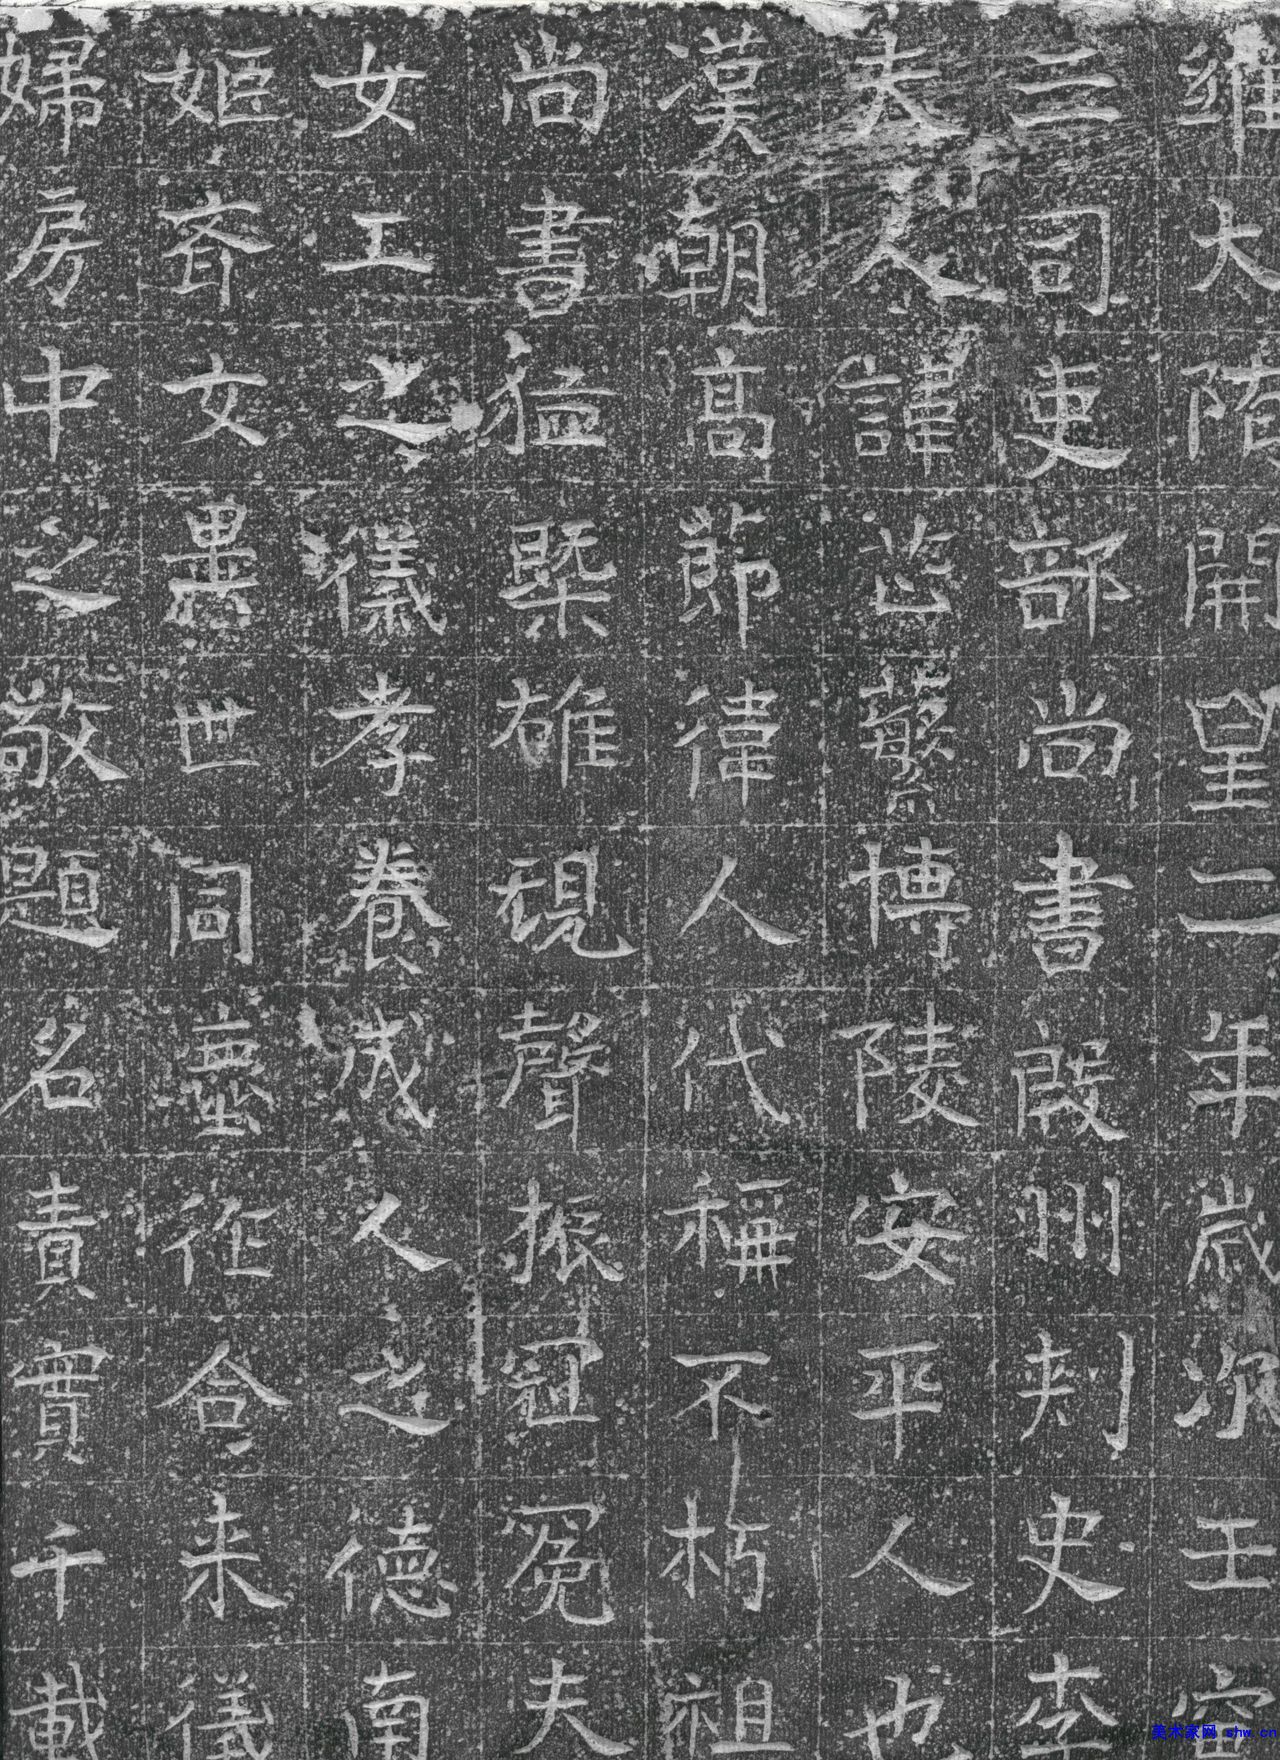 維大隋開皇二年歲次壬寅
三司吏部尚書殷州刺史李
夫人諱芷蘩博陵安平人也
漢朝高節偉人代稱不朽祖
尚書猛槩雄規聲振冠冕夫
女工之儀孝養成人之德南
姬齊女異世同靈往合来儀
婦房中之敬題名責實千載
美术家网 shw.cn